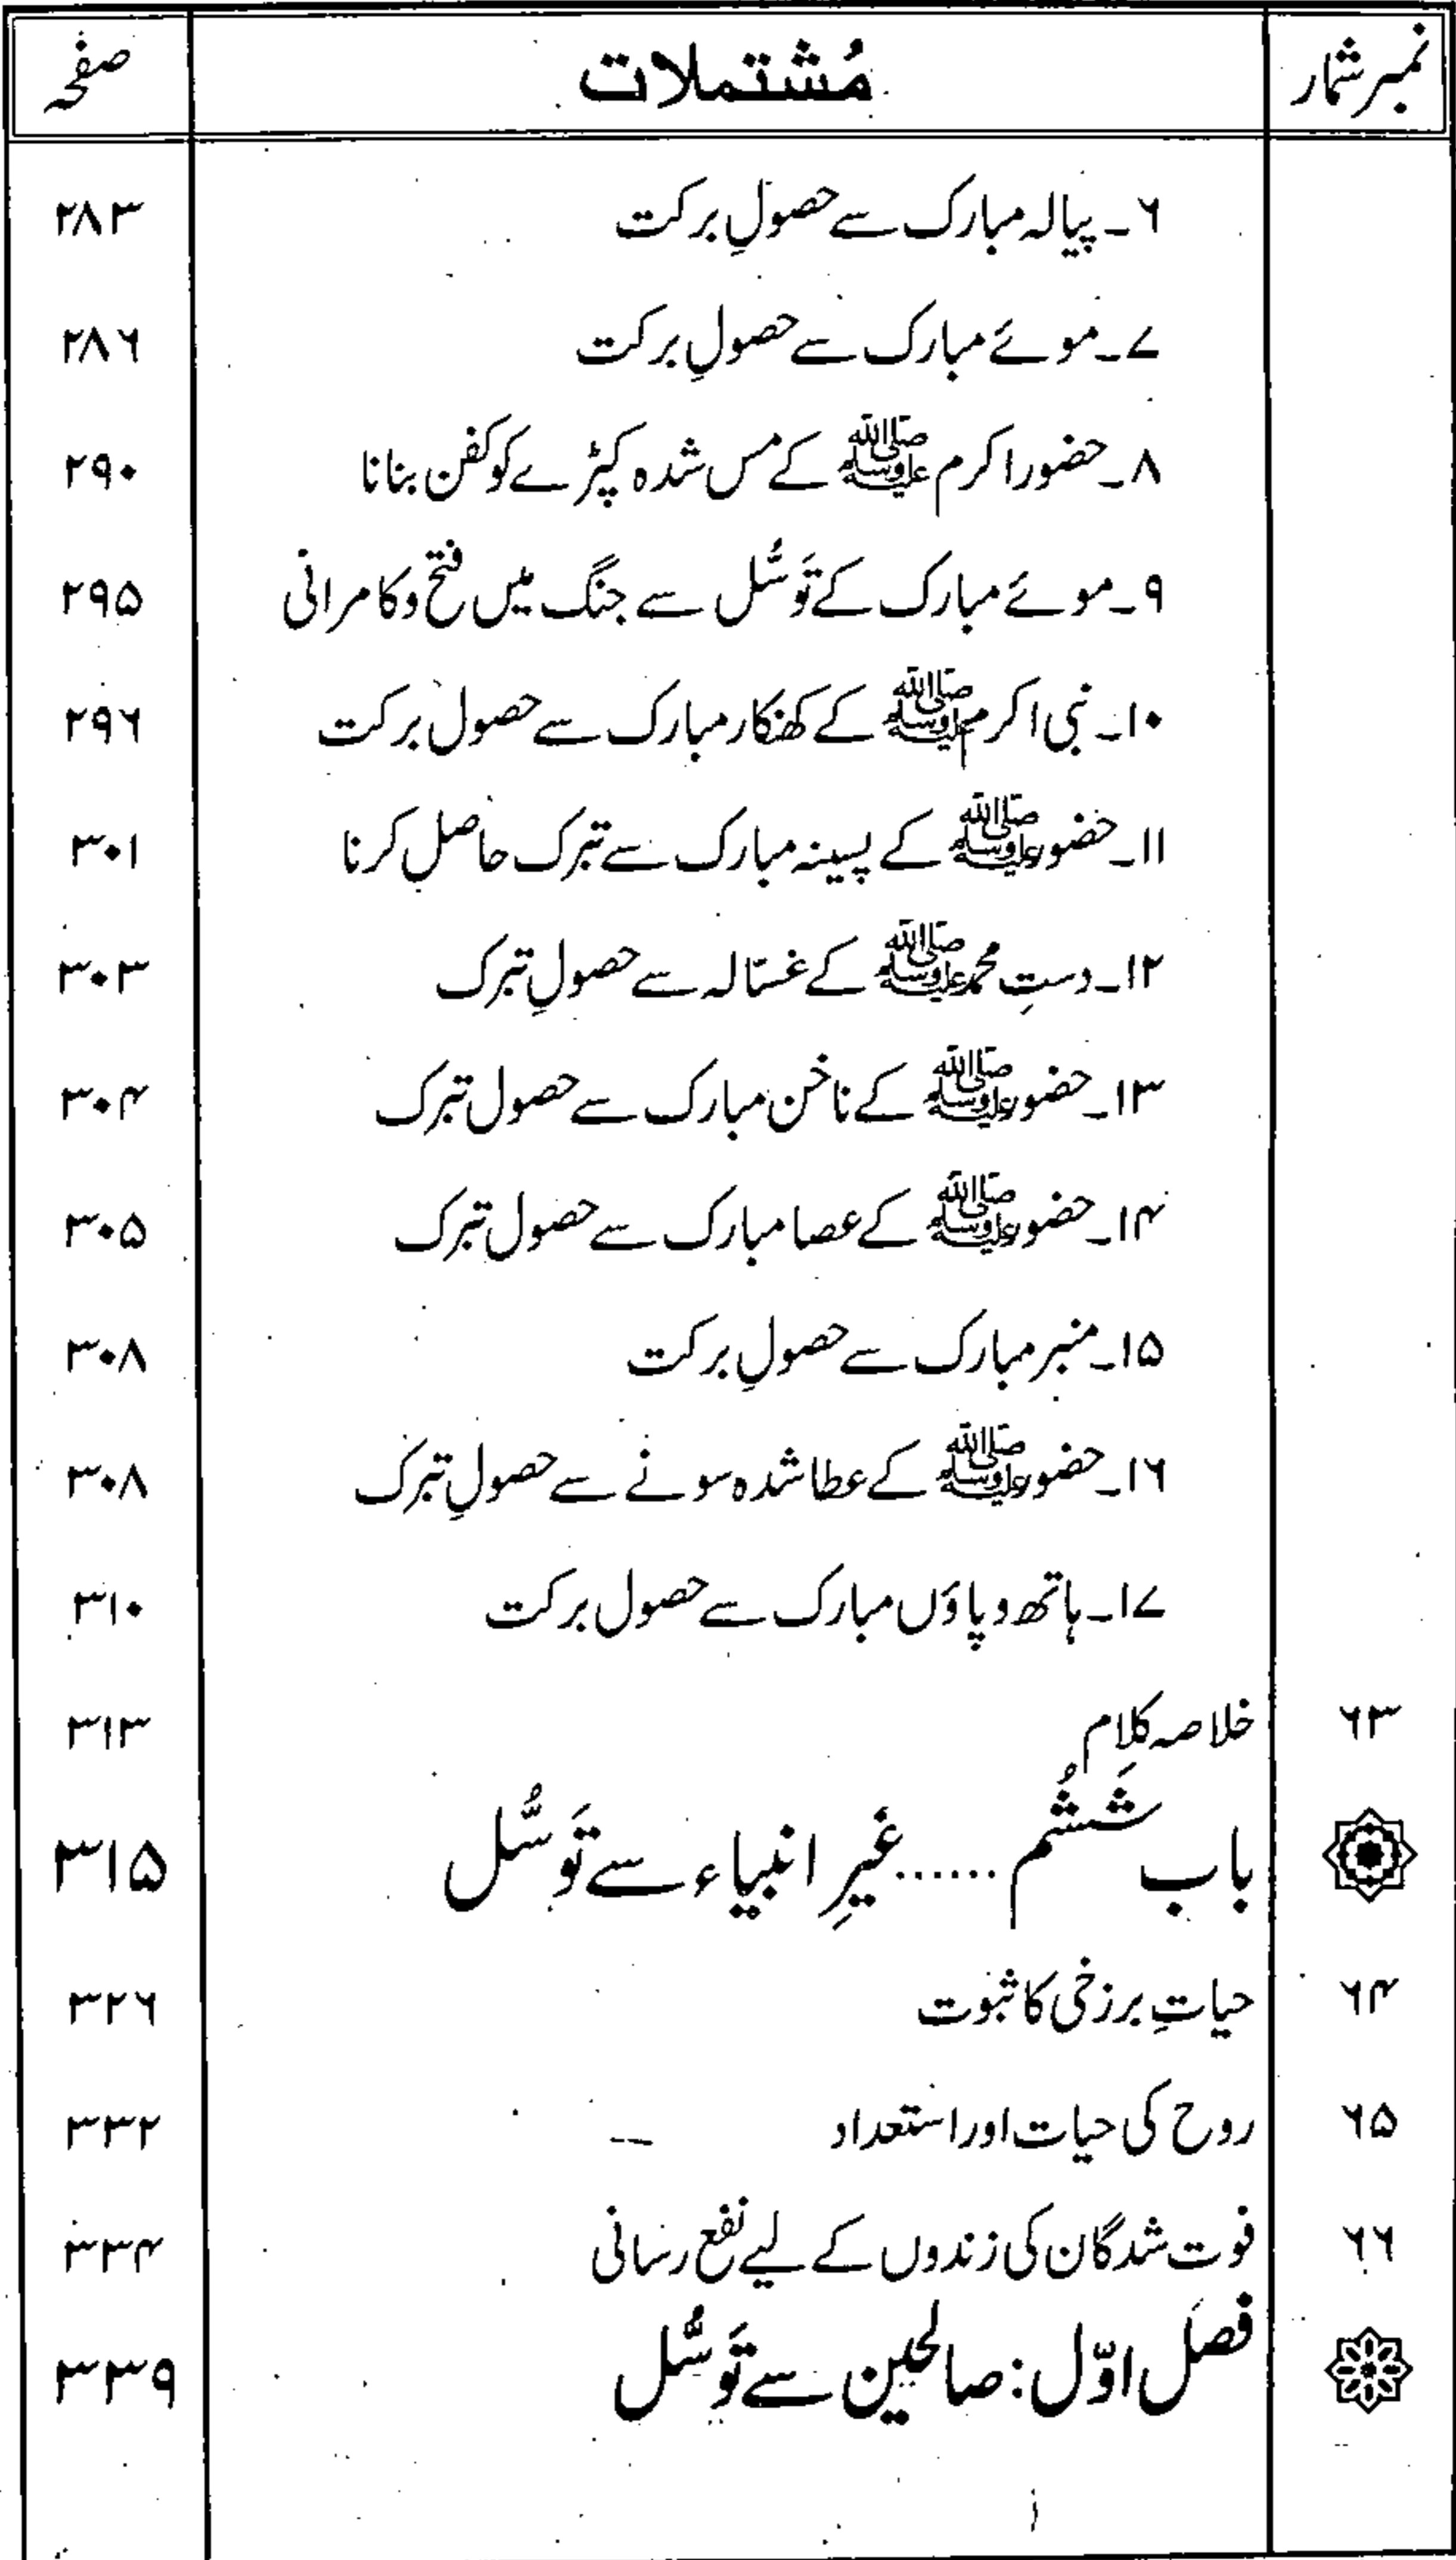 نمبر شمار مُشتملات صفحہ
۶۔ پیالہ مبارک سے حصولِ برکت ۲۸۳
۷۔ موئے مبارک سے حصولِ برکت ۲۸۶
۸۔ حضور اکرم ﷺ کے مس شدہ کپڑے کو کفن بنانا ۲۹۰
۹۔ موئے مبارک کے تَوَسُّل سے جنگ میں فتح و کامرانی ۲۹۵
۱۰۔ نبی اکرم ﷺ کے کھنکار مبارک سے حصول برکت ۲۹۶
۱۱۔ حضور ﷺ کے پسینہ مبارک سے تبرک حاصل کرنا ۳۰۱
۱۲۔ دستِ محمد ﷺ کے غسّالہ سے حصولِ تبرک ۳۰۳
۱۳۔ حضور ﷺ کے ناخن مبارک سے حصول تبرک ۳۰۴
۱۴۔ حضور ﷺ کے عصا مبارک سے حصول تبرک ۳۰۵
۱۵۔ منبر مبارک سے حصولِ برکت ۳۰۸
۱۶۔ حضور ﷺ کے عطا شدہ سونے سے حصولِ تبرک ۳۰۸
۱۷۔ ہاتھ و پاؤں مبارک سے حصول برکت ۳۱۰
۶۳ خلاصہ کلام ۳۱۳
باب شَشُم ...... غیرِ انبیاء سے تَوَسُّل ۳۱۵
۶۴ حیاتِ برزخی کا ثبوت ۳۲۶
۶۵ روح کی حیات اور استعداد ۳۳۲
۶۶ فوت شدگان کی زندوں کے لیے نفع رسانی ۳۳۴
فصل اوّل: صالحین سے تَوَسُّل ۳۳۹